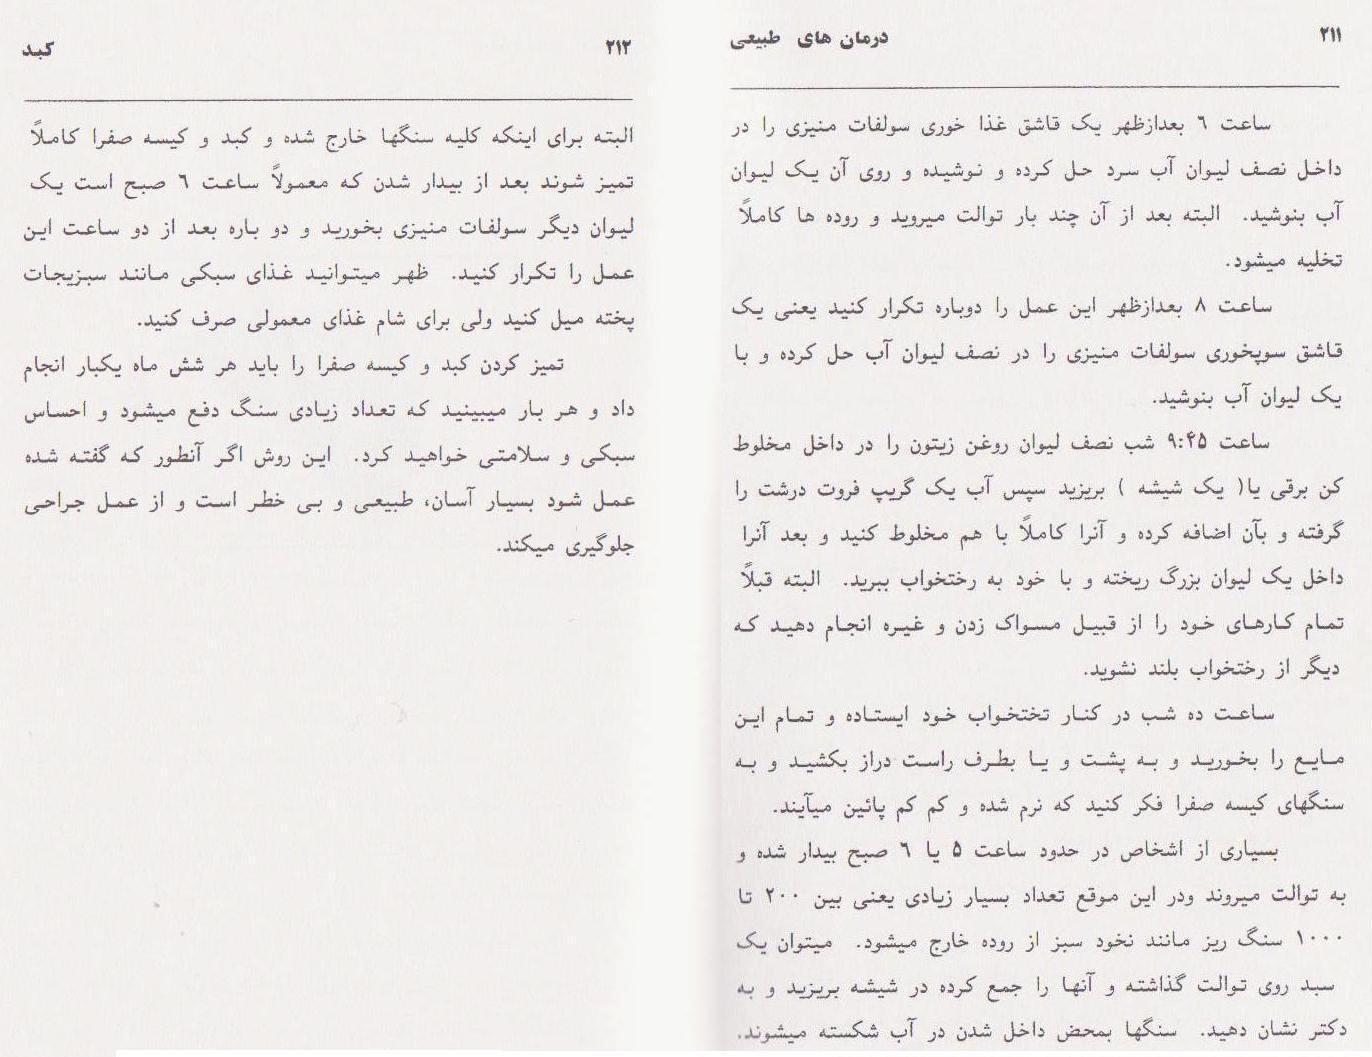 ۲۱۱ درمان های طبیعی
ساعت ٦ بعدازظهر یک قاشق غذا خوری سولفات منیزی را در
داخل نصف لیوان آب سرد حل کرده و نوشیده و روی آن یک لیوان
آب بنوشید. البته بعد از آن چند بار توالت میروید و روده ها کاملاً
تخلیه میشود.
ساعت ۸ بعدازظهر این عمل را دوباره تکرار کنید یعنی یک
قاشق سوپخوری سولفات منیزی را در نصف لیوان آب حل کرده و با
یک لیوان آب بنوشید.
ساعت ۹:۴۵ شب نصف لیوان روغن زیتون را در داخل مخلوط
کن برقی یا( یک شیشه ) بریزید سپس آب یک گریپ فروت درشت را
گرفته و بآن اضافه کرده و آنرا کاملاً با هم مخلوط کنید و بعد آنرا
داخل یک لیوان بزرگ ریخته و با خود به رختخواب ببرید. البته قبلاً
تمام کارهای خود را از قبیل مسواک زدن و غیره انجام دهید که
دیگر از رختخواب بلند نشوید.
ساعت ده شب در کنار تختخواب خود ایستاده و تمام این
مایع را بخورید و به پشت و یا بطرف راست دراز بکشید و به
سنگهای کیسه صفرا فکر کنید که نرم شده و کم کم پائین میآیند.
بسیاری از اشخاص در حدود ساعت ۵ یا ٦ صبح بیدار شده و
به توالت میروند ودر این موقع تعداد بسیار زیادی یعنی بین ۲۰۰ تا
۱۰۰۰ سنگ ریز مانند نخود سبز از روده خارج میشود. میتوان یک
سبد روی توالت گذاشته و آنها را جمع کرده در شیشه بریزید و به
دکتر نشان دهید. سنگها بمحض داخل شدن در آب شکسته میشوند.
۲۱۲ کبد
البته برای اینکه کلیه سنگها خارج شده و کبد و کیسه صفرا کاملاً
تمیز شوند بعد از بیدار شدن که معمولاً ساعت ٦ صبح است یک
لیوان دیگر سولفات منیزی بخورید و دو باره بعد از دو ساعت این
عمل را تکرار کنید. ظهر میتوانید غذای سبکی مانند سبزیجات
پخته میل کنید ولی برای شام غذای معمولی صرف کنید.
تمیز کردن کبد و کیسه صفرا را باید هر شش ماه یکبار انجام
داد و هر بار میبینید که تعداد زیادی سنگ دفع میشود و احساس
سبکی و سلامتی خواهید کرد. این روش اگر آنطور که گفته شده
عمل شود بسیار آسان، طبیعی و بی خطر است و از عمل جراحی
جلوگیری میکند.